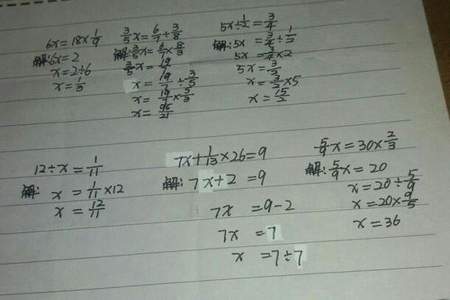 6x=18×1/9
解:6x=2
x=2÷6
x=1/3
3/5x=6/7÷3/8
解:3/5x=6/7×8/3
3/5x=19/7
x=19/7÷3/5
x=19/7×5/3
x=95/21
5x×1/2=3/4
解:5x=3/4÷1/2
5x=3/4×2
5x=3/2
x=3/2×5
x=15/2
12÷x=1/11
解:x=1/11×12
x=12/11
7x+1/13×26=9
解:7x+2=9
7x=9-2
7x=7
x=7÷7
5/9x=30×2/3
解:5/9x=20
x=20÷5/9
x=20×9/5
x=36